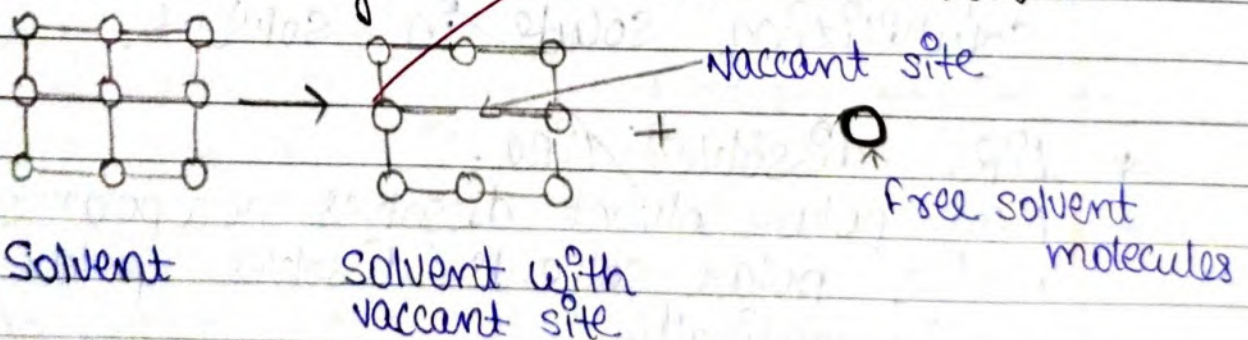 vaccant site
+
free solvent
molecules
Solvent
solvent with
vaccant site